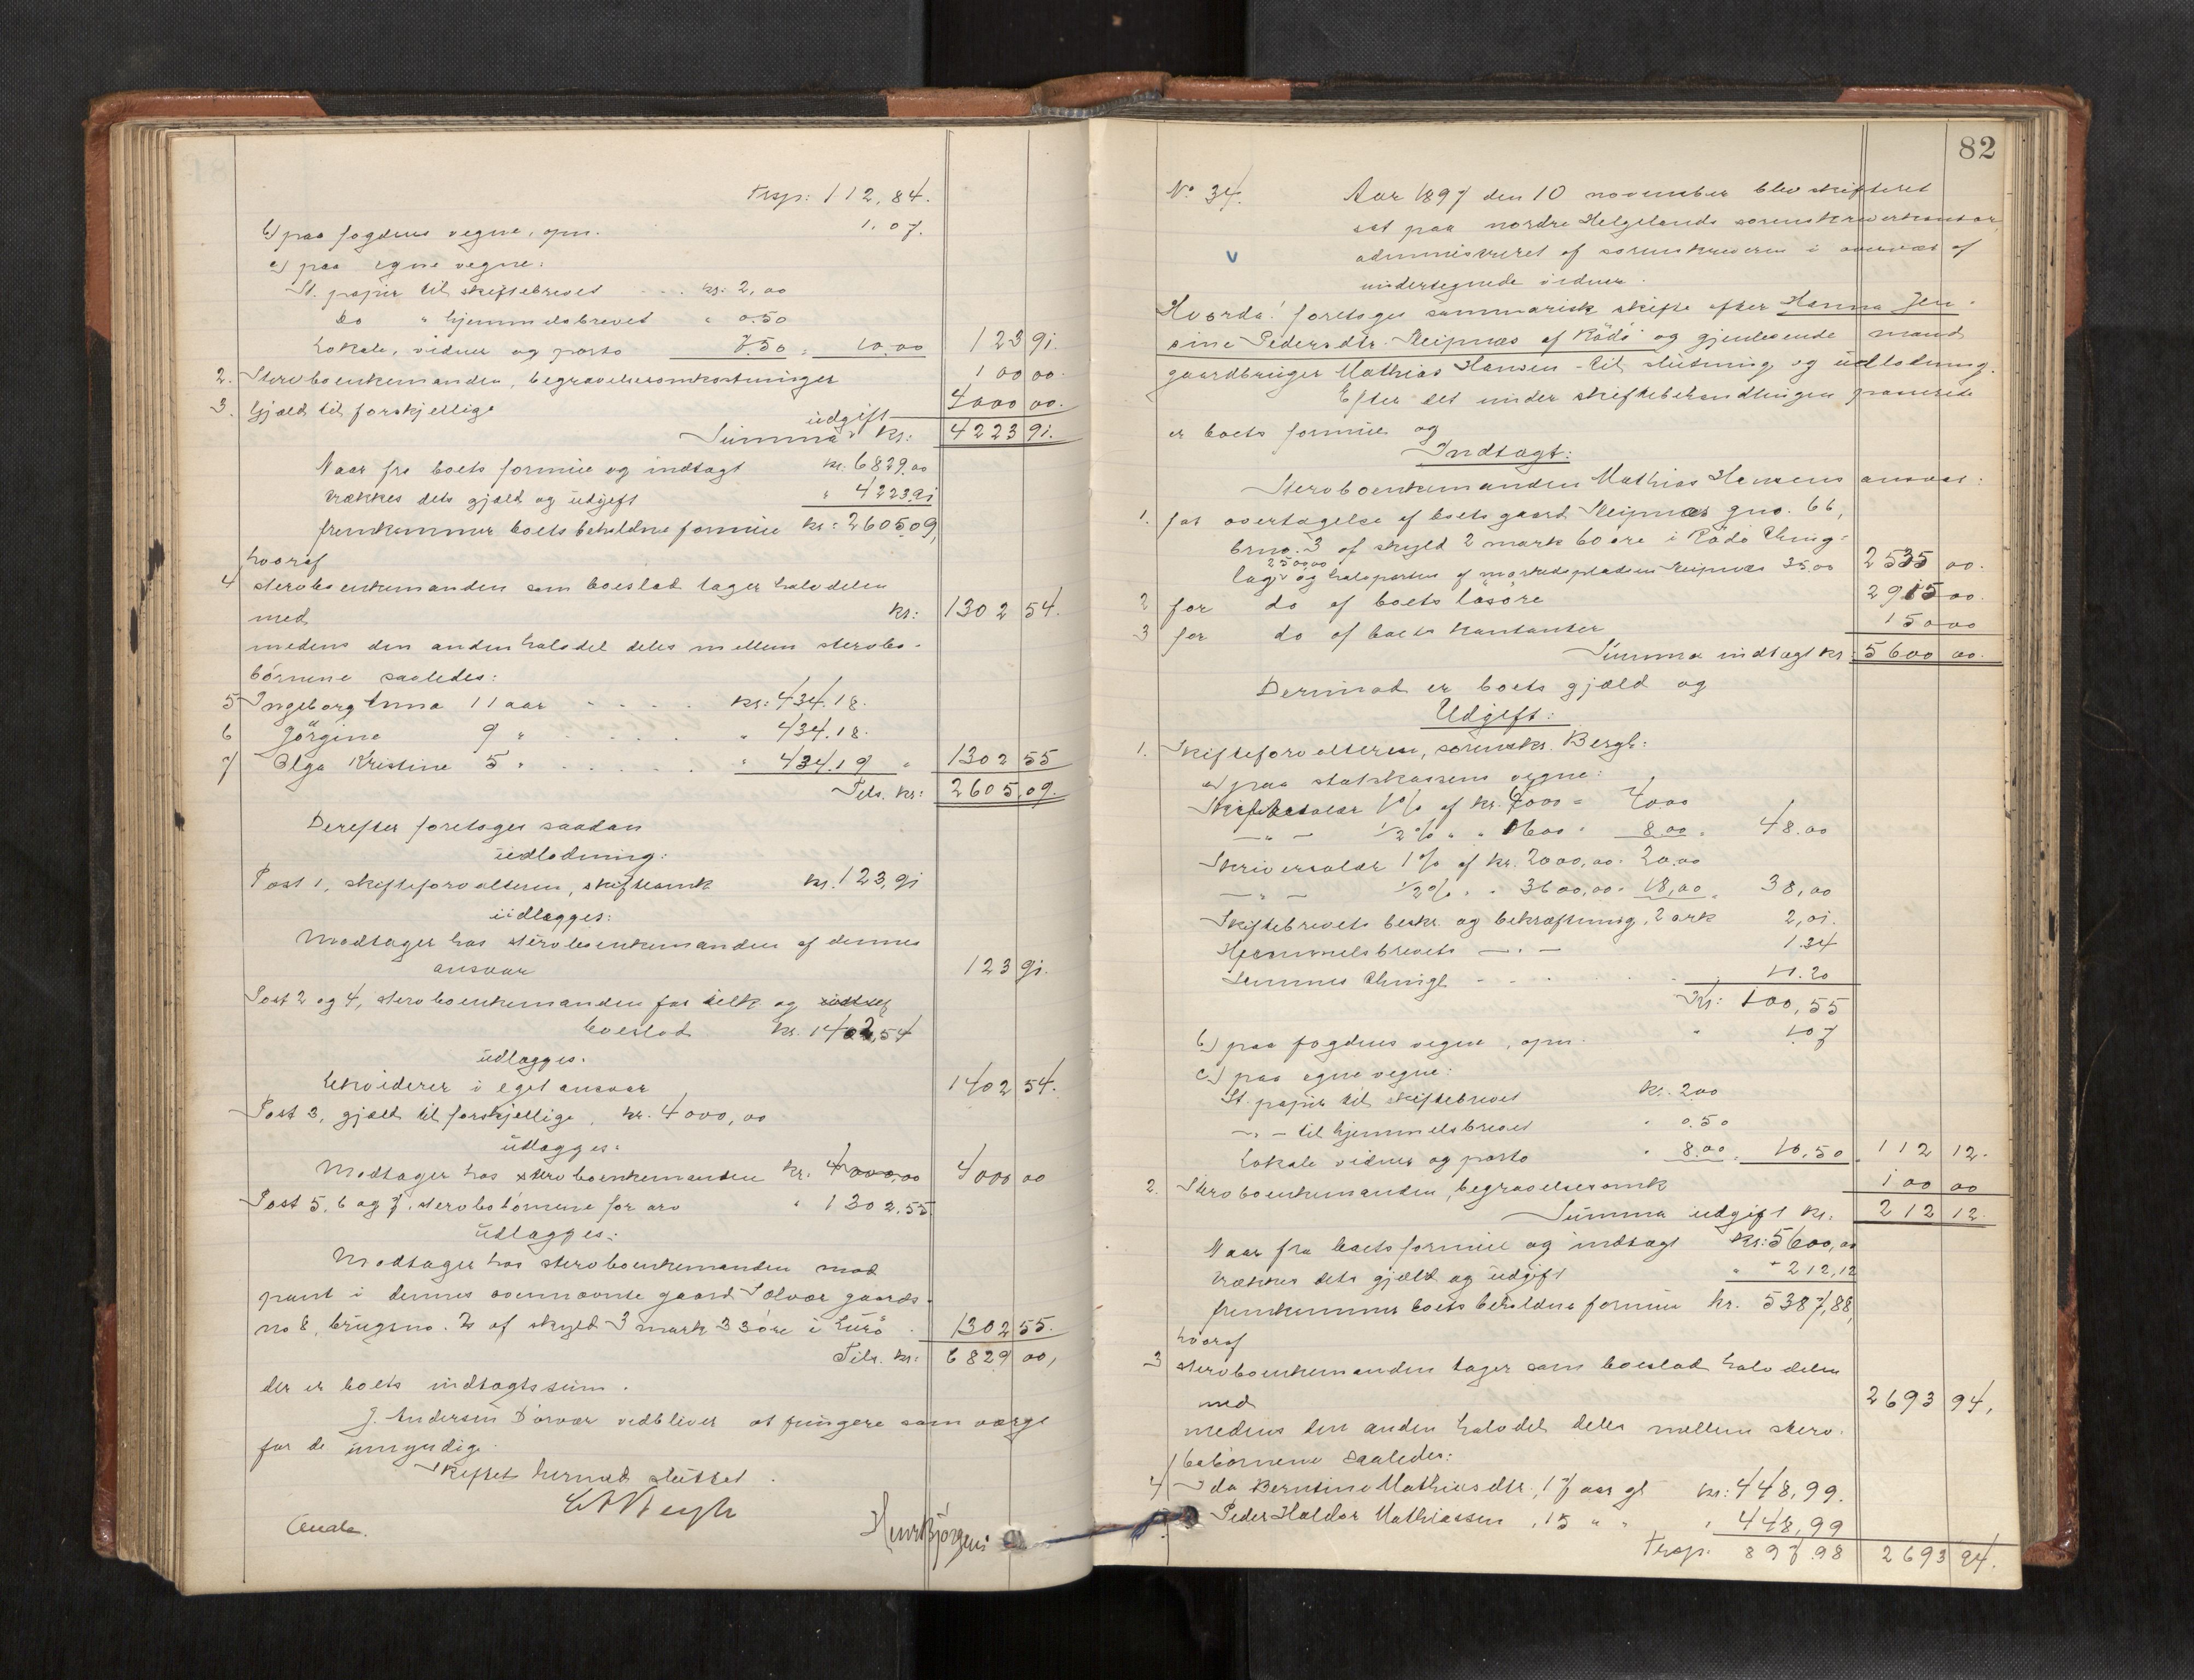 Trsp: 112,84.
b) paa fogdens vegne, opm. 1,07.
c) paa egne vegne:
St. papir til skiftebrevet kr: 2,00
Do " hjemmelsbrevet " 0.50
Lokale, vidner og porto 7.50 = 10.00 123 91.
2. Sterboenkemanden, begravelsesomkostninger 100 00.
3. Gjæld til forskjellige 4000 00.
Summa udgift kr: 4223 91.
Naar fra boets formue og indtægt kr. 6829.00
trækkes dets gjæld og udgift " 4223,91
fremkommer boets beholdne formue kr: 2605,09,
hvoraf
4 sterboenkemanden som boeslod tager halvdelen
med kr: 1302 54.
medens den anden halvdel deles mellem sterbo-
börnene saaledes:
5 Ingeborg Anna 11 aar kr: 434.18.
6 Jörgine 9 " " 434.18.
7 Olga Kristine 5 " " 434.19 " 1302 55
Tils. kr: 2605,09.
Derefter foretoges saadan
udlodning:
Post 1, skifteforvalteren, skifteomk kr. 123,91
udlægges:
Modtager hos sterboenkemanden af dennes
ansvar 123 91.
Post 2 og 4, sterboenkemanden for tilk og
boeslod kr. 1402,54
udlægges.
Likviderer i eget ansvar 1402 54.
Post 3, gjæld til forskjellige, kr. 4000,00
udlægges:
Modtager hos sterboenkemanden kr. 4000,00 4000 00
Post 5, 6 og 7, sterbobörnene for arv " 1302,55.
udlægges:
Modtager hos sterboenkemanden mod
pant i dennes ovennævnte gaard Solvær gaards-
no 8, brugsno. 2 af skyld 3 mark 33 öre i Lurö 1302 55.
Tils. kr: 6829 00,
der er boets indtægtssum.
J. Andersen Dörvær vedbliver at fungere som værge
for de umyndige.
Skiftet hermed sluttet.
Henr Björgeni
82
No 34. Aar 1897 den 10 november blev skifteret
sat paa nordre Helgelands sorenskriverkontor,
administreret af sorenskriveren i overvær af
undertegnede vidner.
v
Hvorda: foretoges summarisk skifte efter Hanna Jen-
sine Pedersdtr. Reipnæs af Rödö og gjenlevende mand
gaardbruger Mathias Hansen - til slutning og udlodning.
Efter det under skiftebehandlingen passerede
er boets formue og
Indtægt:
Sterboenkemanden Mathias Hansens ansvar:
1. for overtagelse af boets gaard Reipnæs gno. 66,
brno. 3 af skyld 2 mark 60 öre i Rödö thing-
2500,00
lag og halvparten af markedspladsen Reipnæs 35.00 2535 00.
2 for do af boets lösöre 2915 00.
3 for do af boets kontanter 150 00
Summa indtægt kr: 5600 00.
Derimod er boets gjæld og
Udgift:
1. Skifteforvalteren, sorenskr. Bergh:
a) paa statskassens vegne:
Skiftesalær 1 % af kr. 4000 = 4000
— " — 1/2 % " " 1600 " 8.00 = 48.00
Skriversalær 1 % af kr. 2000,00. 20.00
— " — 1/2 % " " 3600,00 = 18,00 = 38,00
Skiftebrevets beskr. og bekræftning, 2 ark 2,01.
Hjemmelsbrevets — " — 1.34
Sammes thingl 11.20
Kr: 100,55
b) paa fogdens vegne, opm. " 1.07
c) paa egne vegne:
St. papir til skiftebrevet kr. 2.00
— " — til hjemmelsbrevet " 0.50
Lokale vidner og porto " 8.00. 10,50 112 12.
2. Sterboenkemanden, begravelsesomk 100 00
Summa udgift kr. 212 12.
Naar fra boets formue og indtægt kr: 5600,00
trækkes dets gjæld og udgift " 212,12
fremkommer boets beholdne formue kr. 5387,88,
hvoraf
3 sterboenkemanden tager som boeslod halvdelen
med 2693 94,
medens den anden halvdel deles mellem sterv-
bobörnene saaledes:
4) Ida Berntine Mathiasdtr., 17 aar gl kr: 448,99.
Peder Haldor Mathiassen, 15 " " " 448,99
Trsp. 897.98 2693 94.